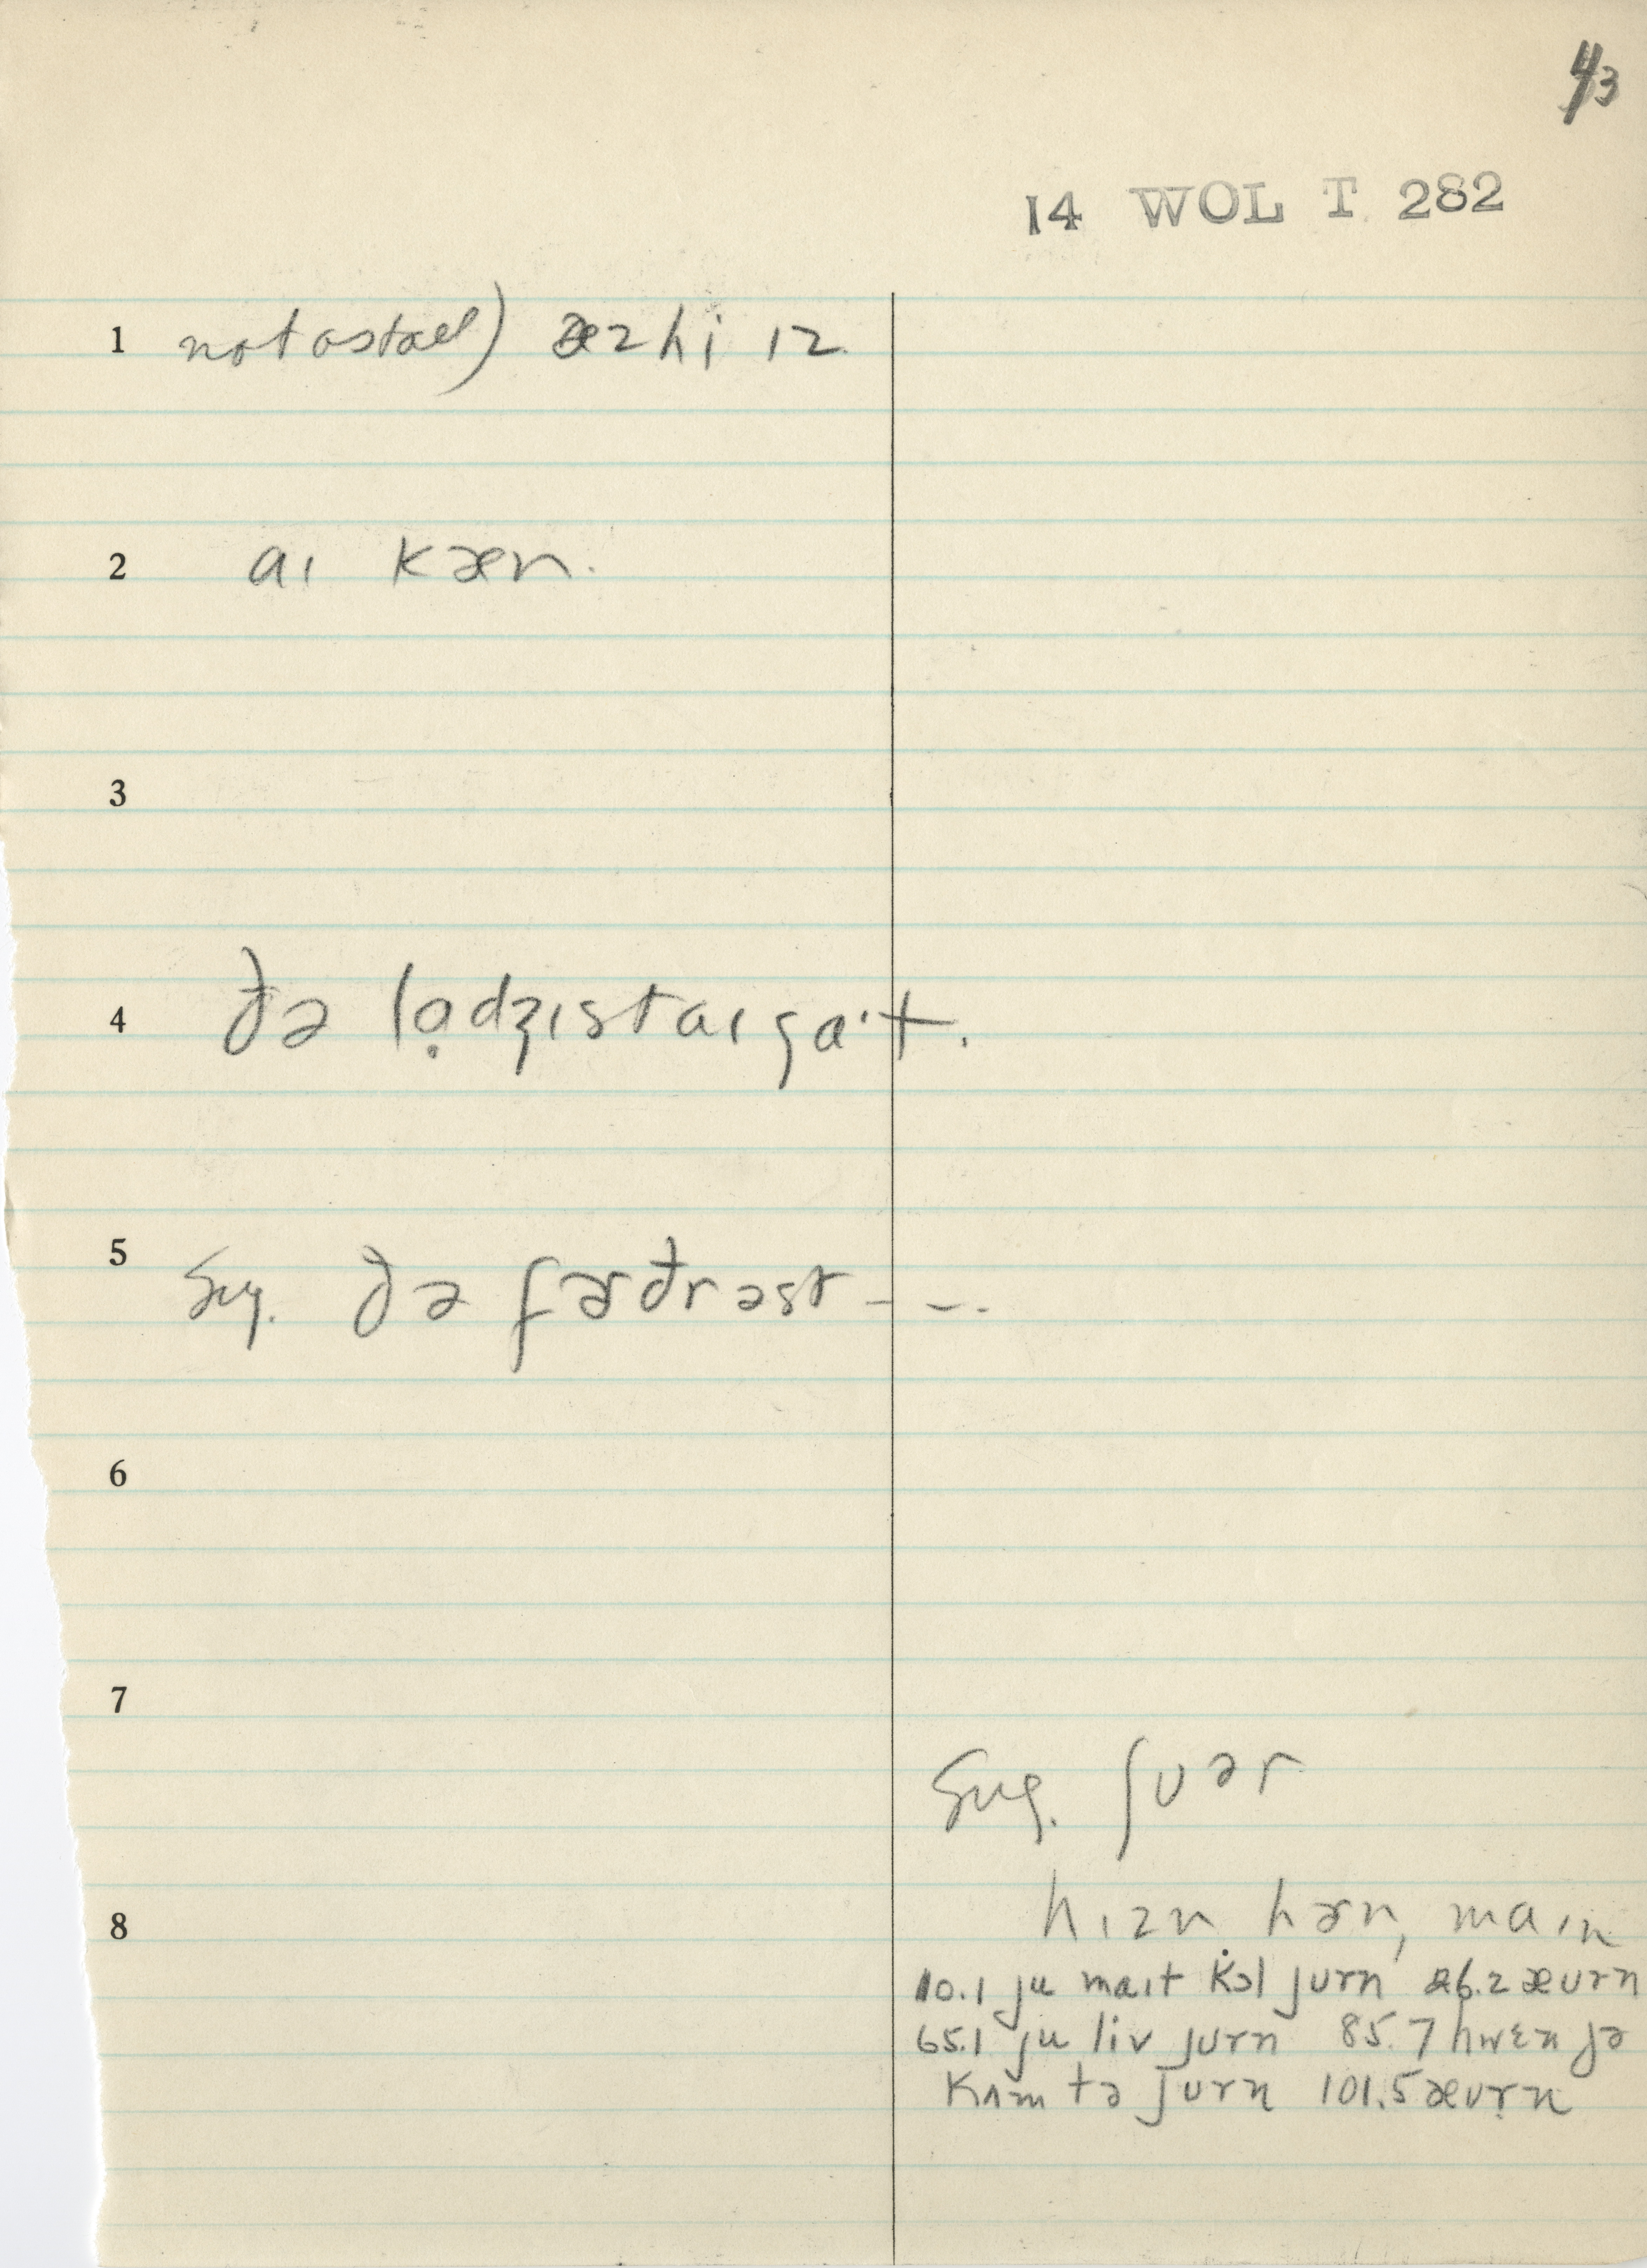 43
14 WOL T 282
1 not as tall) æz hi ɪz.
2 aɪ kæn.
3
4 ðə lọdʒɪst aɪ ga·t.
5 Sug. ðə fɚðrəst - - -
6
7
Sug. ʃʊər
8 hɪzn hɚn, maɪn
10.1 ju maɪt k̇ɔl jʊrn 26.2 æʊrn
65.1 ju liv jʊrn 85.7 hwɛn jə
kʌm tə jʊrn 101.5 æʊrn